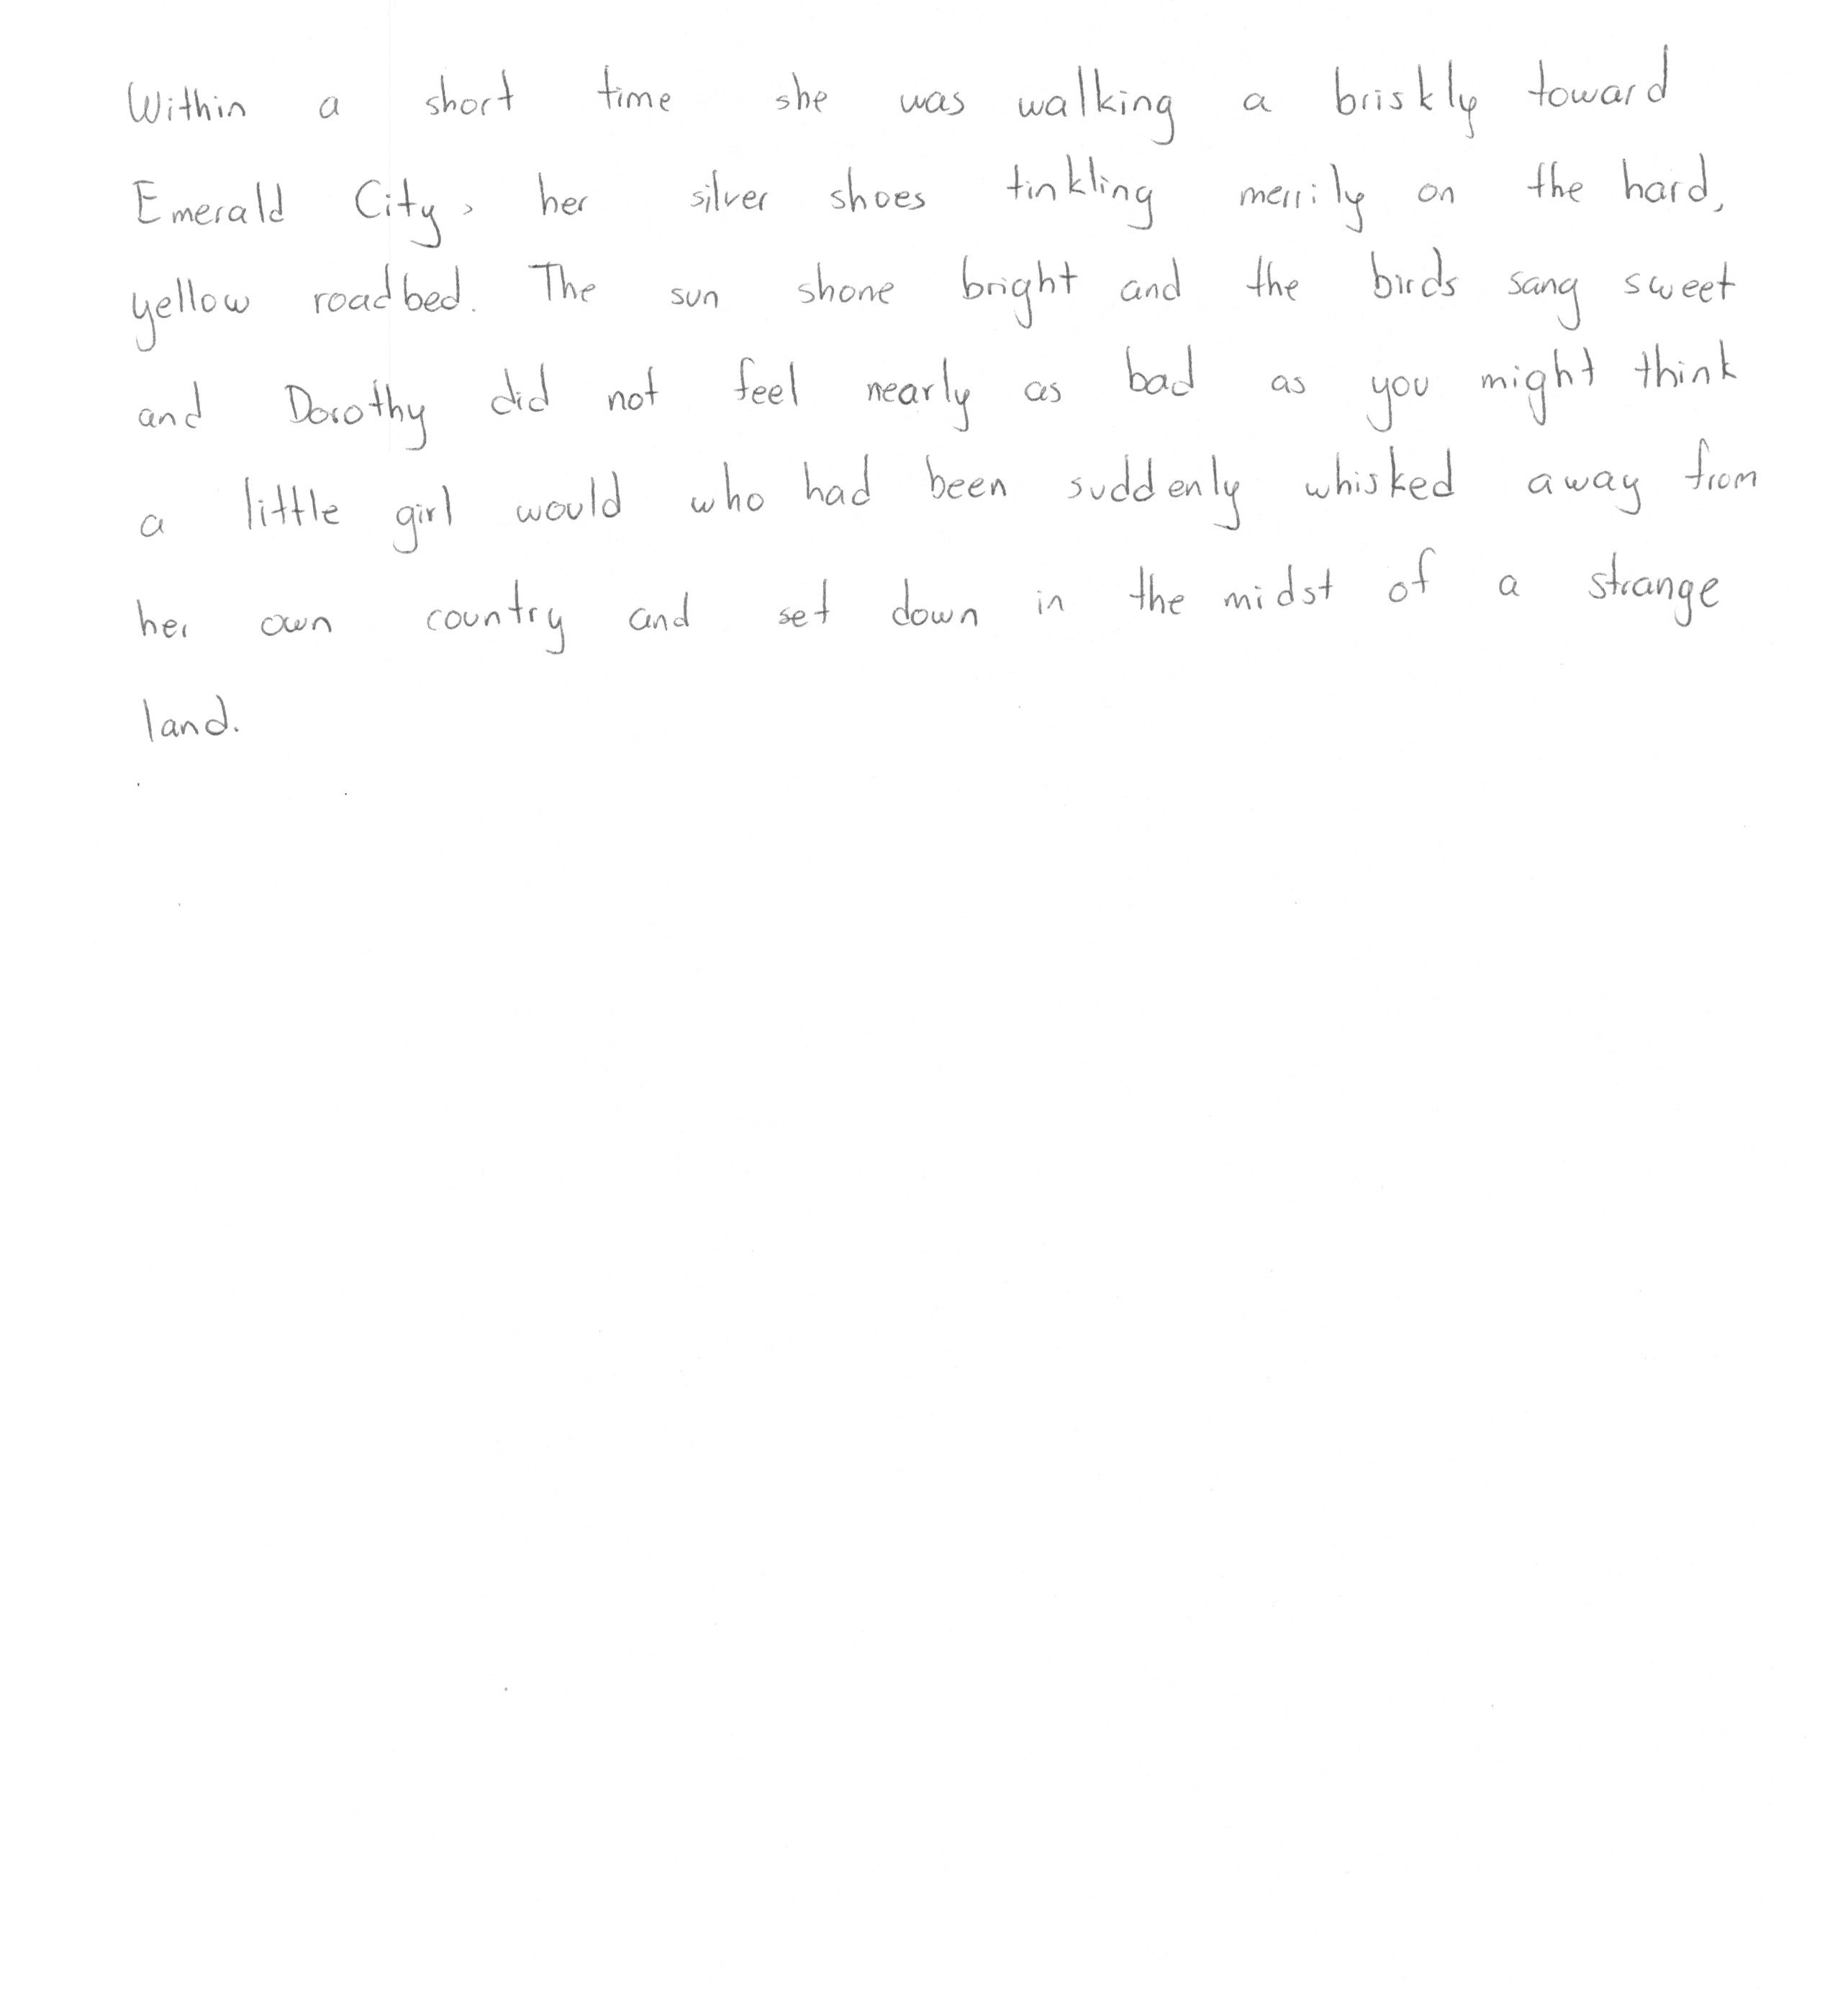 Within a short time she was walking a briskly toward
Emerald City, her silver shoes tinkling merrily on the hard,
yellow roadbed. The sun shone bright and the birds sang sweet
and Dorothy did not feel nearly as bad as you might think
a little girl would who had been suddenly whisked away from
her own country and set down in the midst of a strange
land.